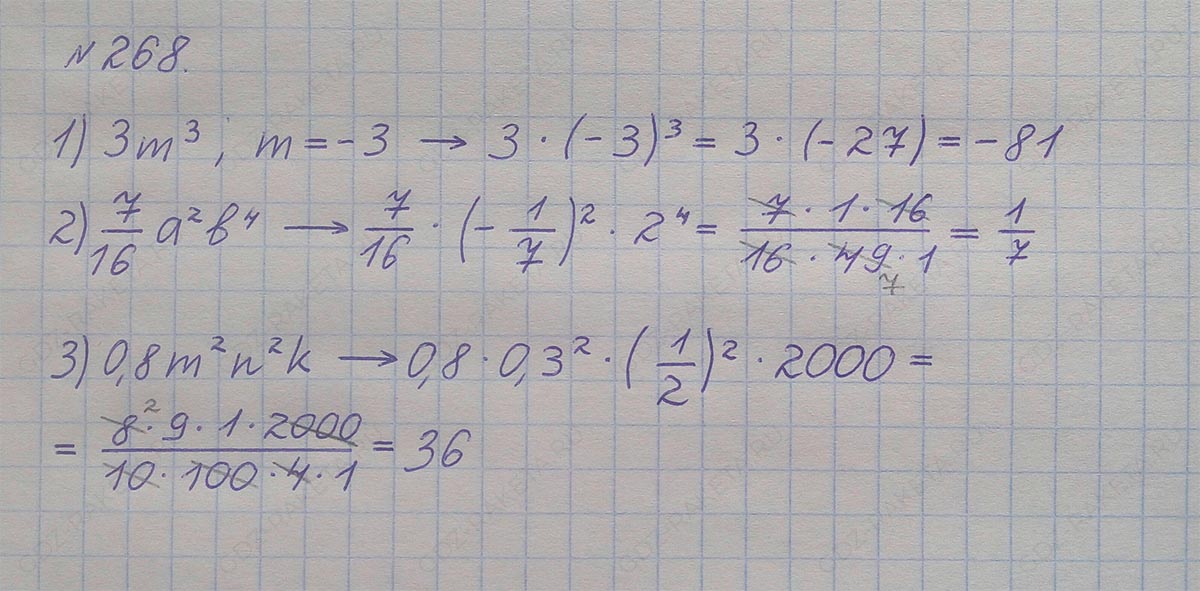 № 268.
1) 3m³; m = -3 → 3 · (-3)³ = 3 · (-27) = -81
2) 7/16 a²b⁴ → 7/16 · (-1/7)² · 2⁴ = (7 · 1 · 16)/(16 · 49 · 1) = 1/7
7
3) 0,8m²n²k → 0,8 · 0,3² · (1/2)² · 2000 =
2
= (8 · 9 · 1 · 2000)/(10 · 100 · 4 · 1) = 36